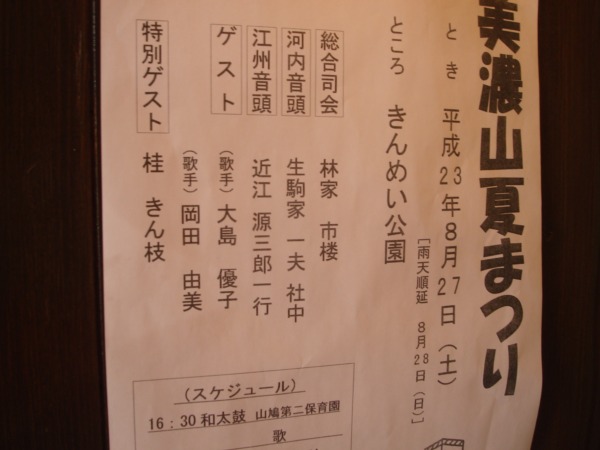 美濃山夏まつり
とき 平成23年8月27日(土)
[雨天順延 8月28日(日)]
ところ きんめい公園
総合司会 林家 市楼
河内音頭 生駒家 一夫 社中
江州音頭 近江 源三郎一行
ゲスト (歌手)大島 優子
(歌手)岡田 由美
特別ゲスト 桂 きん枝
(スケジュール)
16:30 和太鼓 山鳩第二保育園
歌